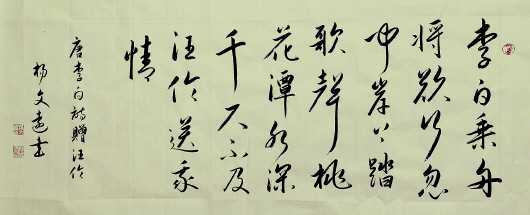 李白乘舟
将欲行忽
闻岸上踏
歌聲桃
花潭水深
千尺不及
汪伦送我
情
唐李白诗贈汪伦
杨文远书